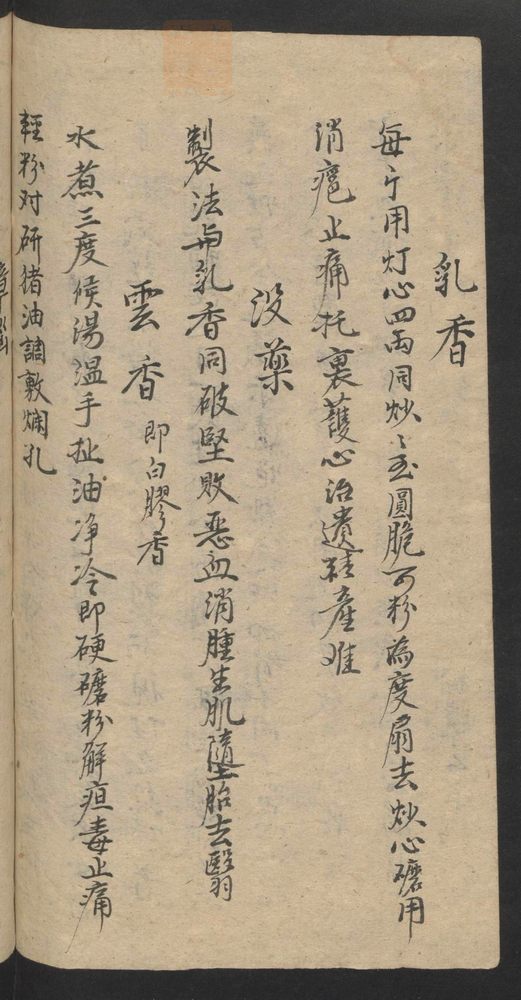 乳香
每斤用灯心四両同炒〻至圓脆可粉為度扇去炒心磨用
消疤止痛托裏護心治遺精產难
没藥
製法与乳香同破堅敗惡血消腫生肌墮胎去翳
雲香 即白膠香
水煮三度候湯温手扯油净冷即硬磨粉解疽毒止痛
輕粉对研猪油調敷爛孔